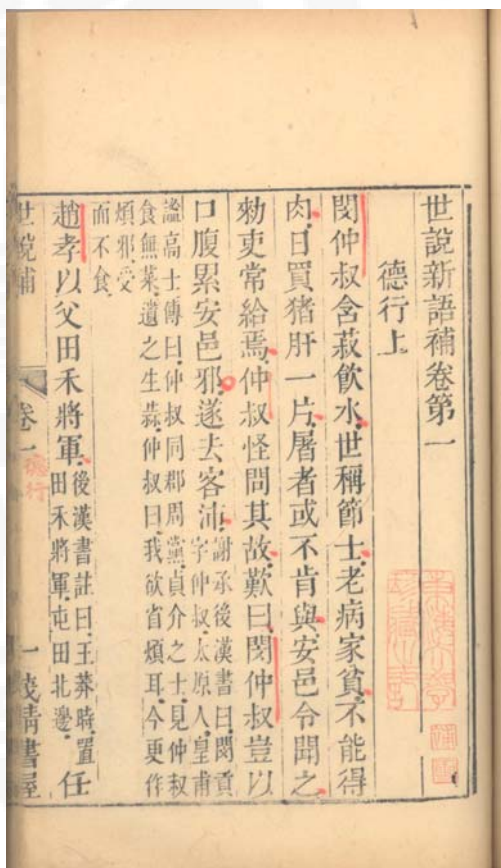 世說新語補卷第一
德行上
閔仲叔含菽飲水世稱節士老病家貧不能得
肉日買猪肝一片屠者或不肯與安邑令聞之
勑吏常給焉仲叔怪問其故歎曰閔仲叔豈以
口腹累安邑邪遂去客沛謝承後漢書曰閔貢
字仲叔太原人皇甫
謐高士傳曰仲叔同郡周黨貞介之士見仲叔
食無菜遺之生蒜仲叔曰我欲省煩耳今更作
煩邪受
而不食
趙孝以父田禾將軍後漢書註曰王莽時置
田禾將軍屯田北邊任
世說補 卷一 德行 一 茂清書屋